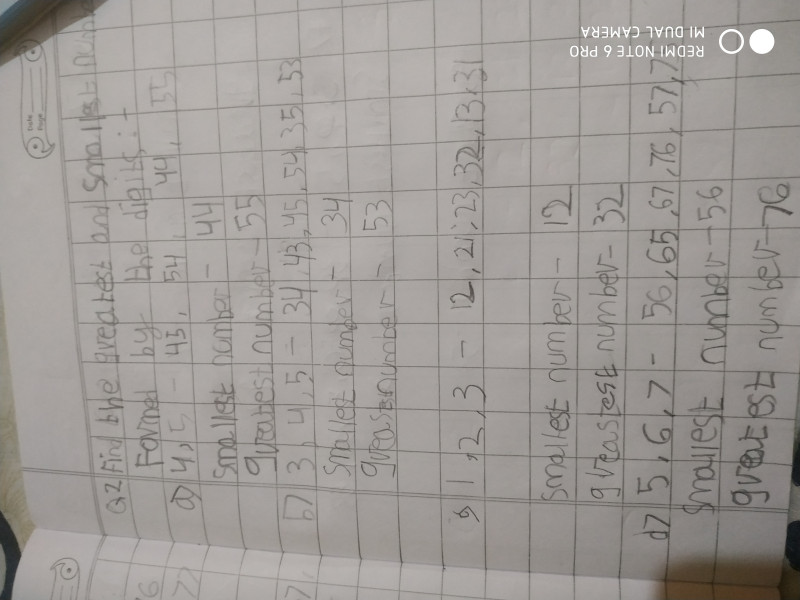 Date
Page
Q2 Find the greatest and smallest
Formed by the digits :-
a) 4, 5 - 45, 54, 44, 55
smallest number - 44
greatest number - 55
b) 3, 4, 5 - 34, 43, 45, 54, 35, 53
smallest number - 34
greatest number - 53
1, 2, 3 - 12, 21, 23, 32, 13, 31
smallest number - 12
greastest number - 32
d) 5, 6, 7 - 56, 65, 67, 76, 57, 7
smallest number - 56
greatest number - 76
REDMI NOTE 6 PRO
MI DUAL CAMERA